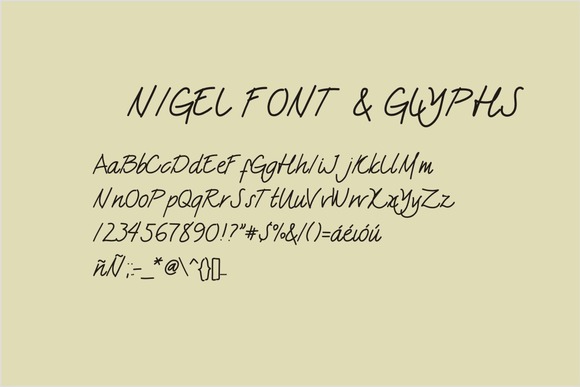 NIGEL FONT & GLYPHS
AaBbCcDdEeFfGgHhIiJjKkLlMm
NnOoPpQqRrSsTtUuVvWwXxYyZz
1234567890!?"#$%&/()=áéíóú
ñÑ;:-_*@\^{}[]_